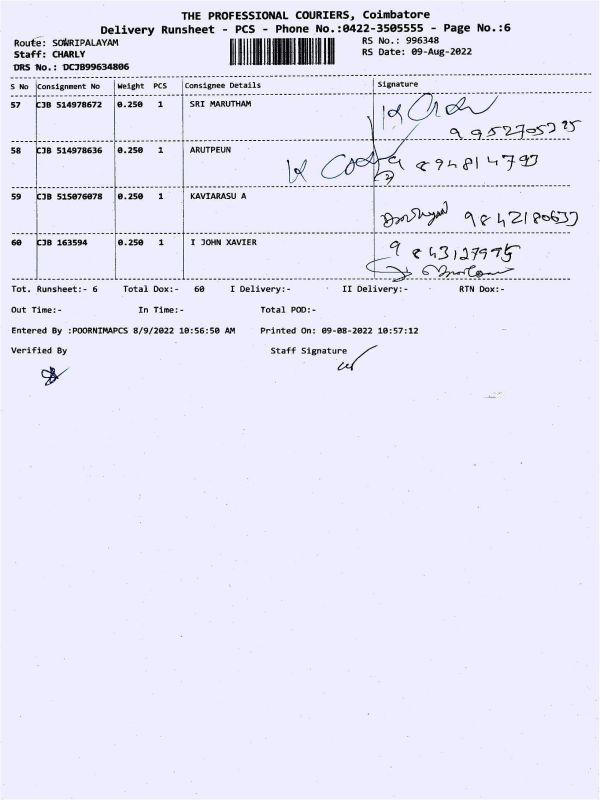 THE PROFESSIONAL COURIERS, Coimbatore
Delivery Runsheet - PCS - Phone No.:0422-3505555 - Page No.:6
Route: SOWRIPALAYAM RS No.: 996348
Staff: CHARLY RS Date: 09-Aug-2022
DRS No.: DCJB99634806
S No Consignment No Weight PCS Consignee Details Signature
57 CJB 514978672 0.250 1 SRI MARUTHAM
9952705225
58 CJB 514978636 0.250 1 ARUTPEUN
9894814793
59 CJB 515076078 0.250 1 KAVIARASU A
9842180637
60 CJB 163594 0.250 1 I JOHN XAVIER
9843127995
Tot. Runsheet:- 6 Total Dox:- 60 I Delivery:- II Delivery:- RTN Dox:-
Out Time:- In Time:- Total POD:-
Entered By :POORNIMAPCS 8/9/2022 10:56:50 AM Printed On: 09-08-2022 10:57:12
Verified By Staff Signature